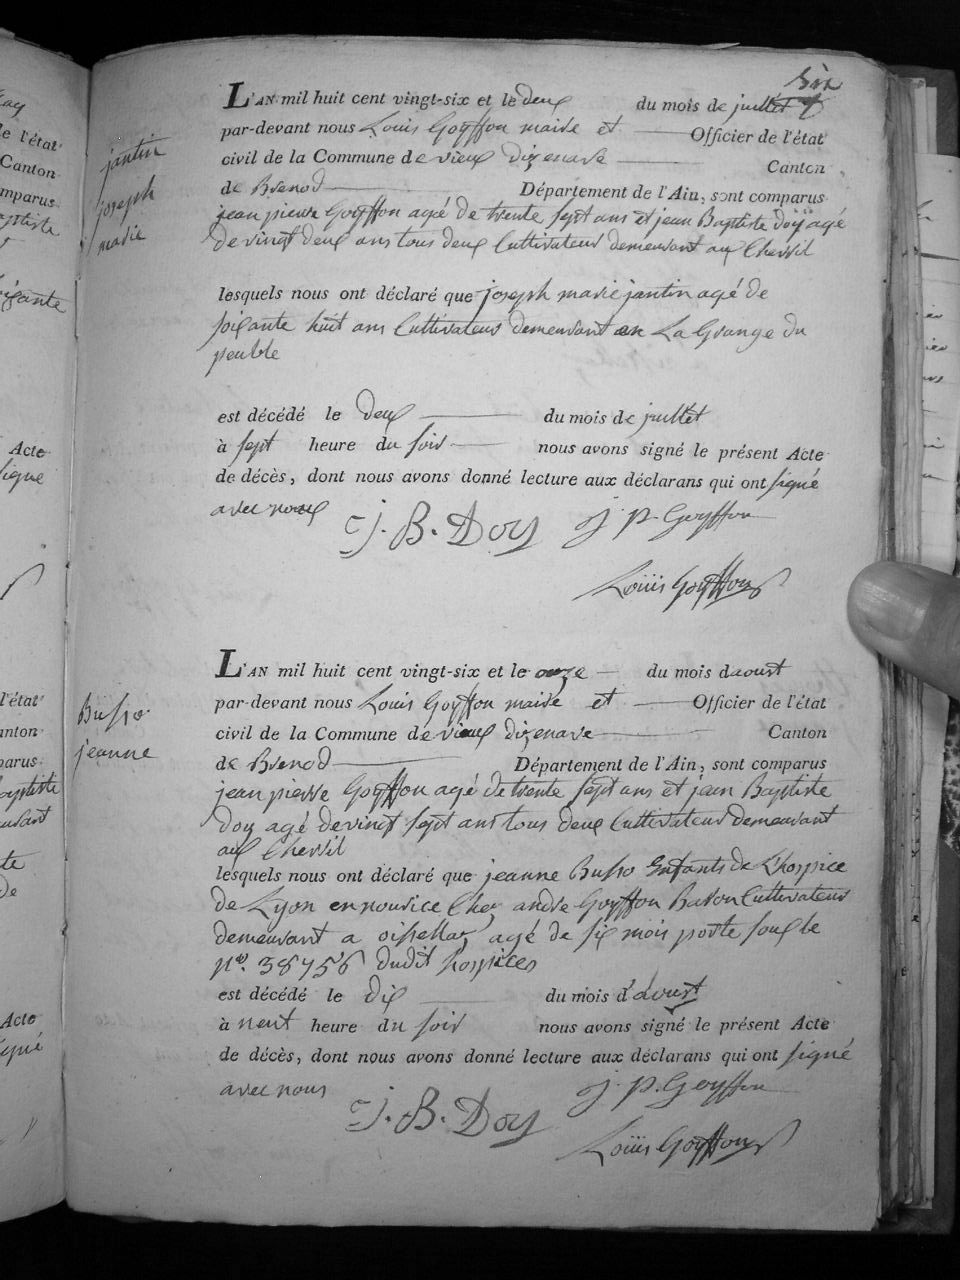 six
jantin
joseph
marie
L'AN mil huit cent vingt-six et le deux du mois de juillet
par-devant nous Louis Goyffon maire et Officier de l'état
civil de la Commune de vieux dizenave Canton
de Brenod Département de l'Ain, sont comparus
jean pierre Goyffon agé de trente sept ans et jean Baptiste Doy agé
de vingt deux ans tous deux Cultivateur demeurant aux Chevril
lesquels nous ont déclaré que joseph marie jantin agé de
soixante huit ans Cultivateur demeurant en La Grange du
peuble
est décédé le deux du mois de juillet
à sept heure du soir nous avons signé le présent Acte
de décès, dont nous avons donné lecture aux déclarans qui ont signé
avec nous
J. B. Doy J. P. Goyffon
Louis Goyffon
Busso
jeanne
L'AN mil huit cent vingt-six et le onze du mois daoust
par-devant nous Louis Goyffon maire et Officier de l'état
civil de la Commune de vieux dizenave Canton
de Brenod Département de l'Ain, sont comparus
jean pierre Goyffon agé de trente sept ans et jean Baptiste
Doy agé de vingt sept ans tous deux Cultivateur demeurant
aux Chevril
lesquels nous ont déclaré que jeanne Busso Enfants de L'hospice
de Lyon en nourice Chez andre Goyffon Baron Cultivateur
demeurant a oissellaz, agé de six mois porte soux le
no. 38756 dudit hospices
est décédé le dix du mois d'avoust
à neut heure du soir nous avons signé le présent Acte
de décès, dont nous avons donné lecture aux déclarans qui ont signé
avec nous
J. B. Doy J. P. Goyffon
Louis Goyffon